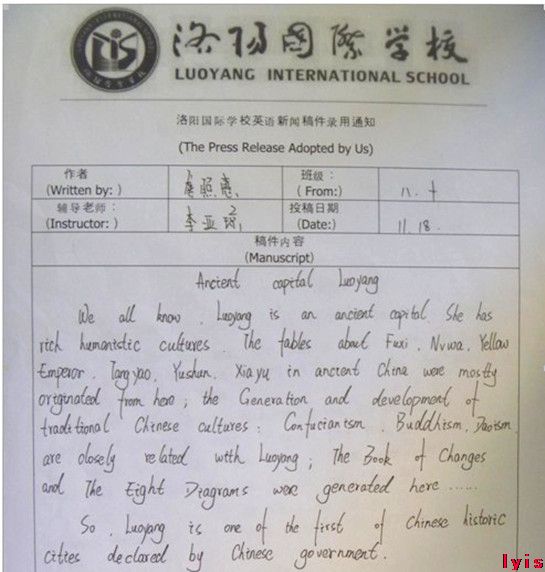 洛阳國際学校
LUOYANG INTERNATIONAL SCHOOL
洛阳国际学校英语新闻稿件录用通知
(The Press Release Adopted by Us)
作者 (Written by: ) 照惠 班级: ( From:) 八.十
辅导老师: (Instructor: ) 李亚 投稿日期 (Date:) 11.18.
稿件内容
(Manuscript)
Ancient capital Luoyang
We all know, Luoyang is an ancient capital. She has
rich humanistic cultures. The fables about Fuxi, Nvwa, Yellow
Emperor, Tangyao, Yushun, Xiayu in ancient China were mostly
originated from here; the Generation and development of
traditional Chinese cultures: Confucianism, Buddhism, Daoism
are closely related with Luoyang; The Book of Changes
and The Eight Diagrams were generated here ......
So, Luoyang is one of the first of Chinese historic
cities declared by Chinese government.
lyis